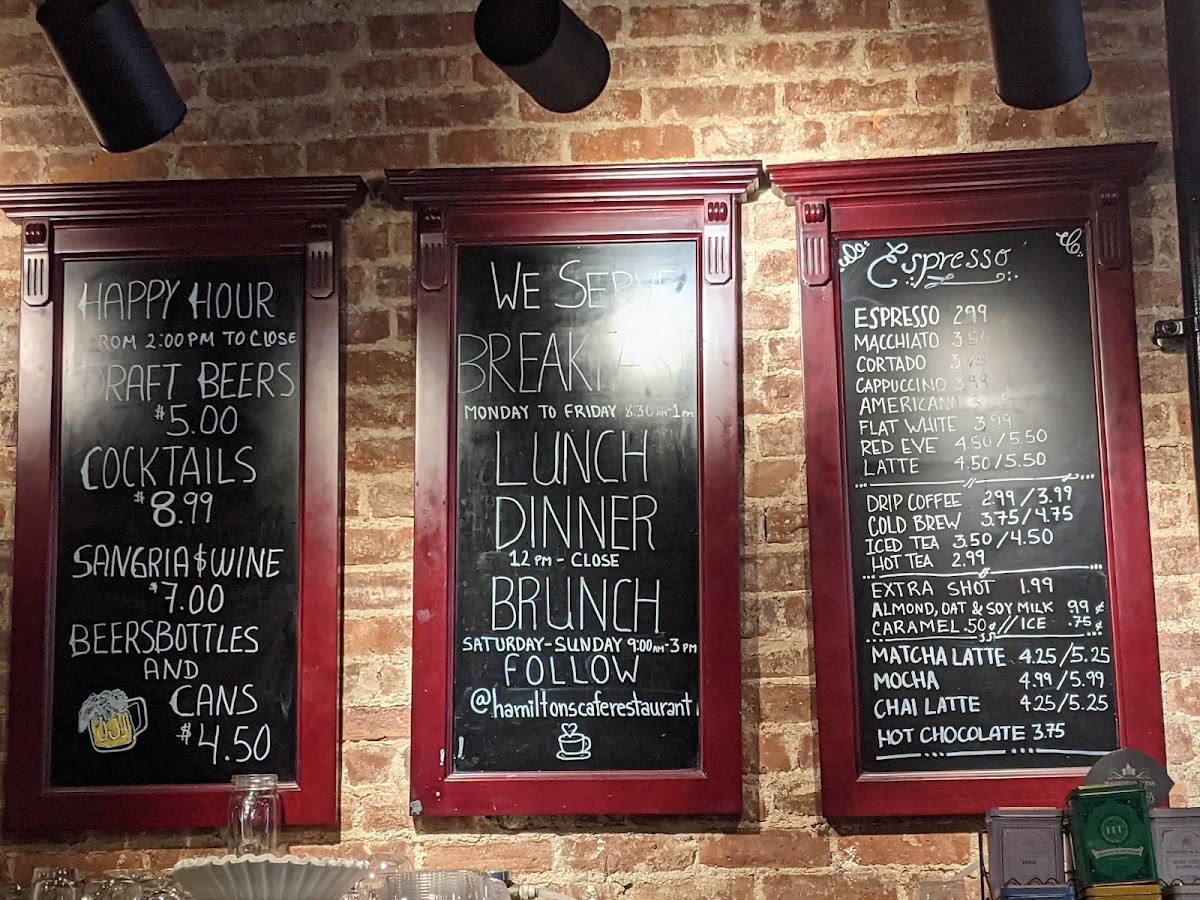 HAPPY HOUR
FROM 2:00PM TO CLOSE
DRAFT BEERS
$5.00
COCKTAILS
$8.99
SANGRIA $ WINE
$7.00
BEERSBOTTLES
AND
CANS
$4.50
WE SERVE
BREAKFAST
MONDAY TO FRIDAY 8:30AM-1PM
LUNCH
DINNER
12 PM - CLOSE
BRUNCH
SATURDAY-SUNDAY 9:00AM-3PM
FOLLOW
@hamiltonscaferestaurant
Espresso
ESPRESSO 2.99
MACCHIATO 3.50
CORTADO
CAPPUCCINO 3.99
AMERICANO
FLAT WHITE 3.99
RED EYE 4.50/5.50
LATTE 4.50/5.50
DRIP COFFEE 2.99/3.99
COLD BREW 3.75/4.75
ICED TEA 3.50/4.50
HOT TEA 2.99
EXTRA SHOT 1.99
ALMOND, OAT & SOY MILK .99¢
CARAMEL .50¢ // ICE .75¢
MATCHA LATTE 4.25/5.25
MOCHA 4.99/5.99
CHAI LATTE 4.25/5.25
HOT CHOCOLATE 3.75